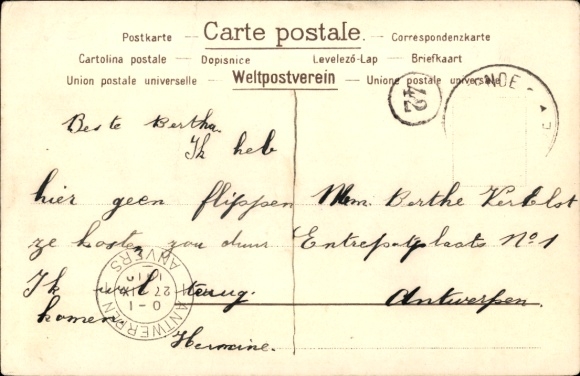 Postkarte — Carte postale. — Correspondenzkarte
Cartolina postale — Dopisnice Levelező-Lap — Briefkaart
Union postale universelle — Weltpostverein — Unione postale universale
42
Beste Bertha.
Ik heb
hier geen flippen
ze kosten zou duur
Ik wel terug.
komen
Hermine.
Mem. Berthe VerElst
Entrepotplaats No 1
Antwerpen.
ANTWERPEN
ANVERS
0-1
27 IX